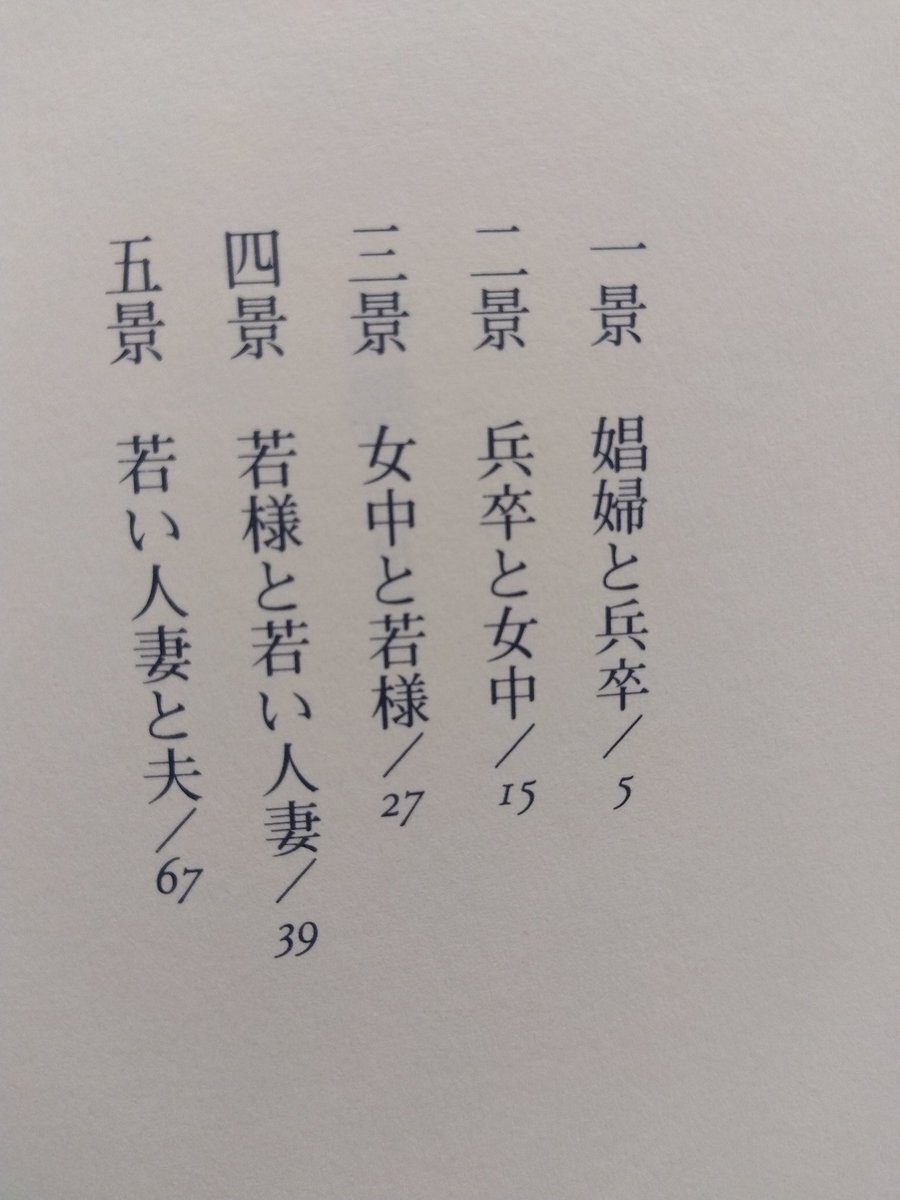 一景　娼婦と兵卒／5
二景　兵卒と女中／15
三景　女中と若様／27
四景　若様と若い人妻／39
五景　若い人妻と夫／67